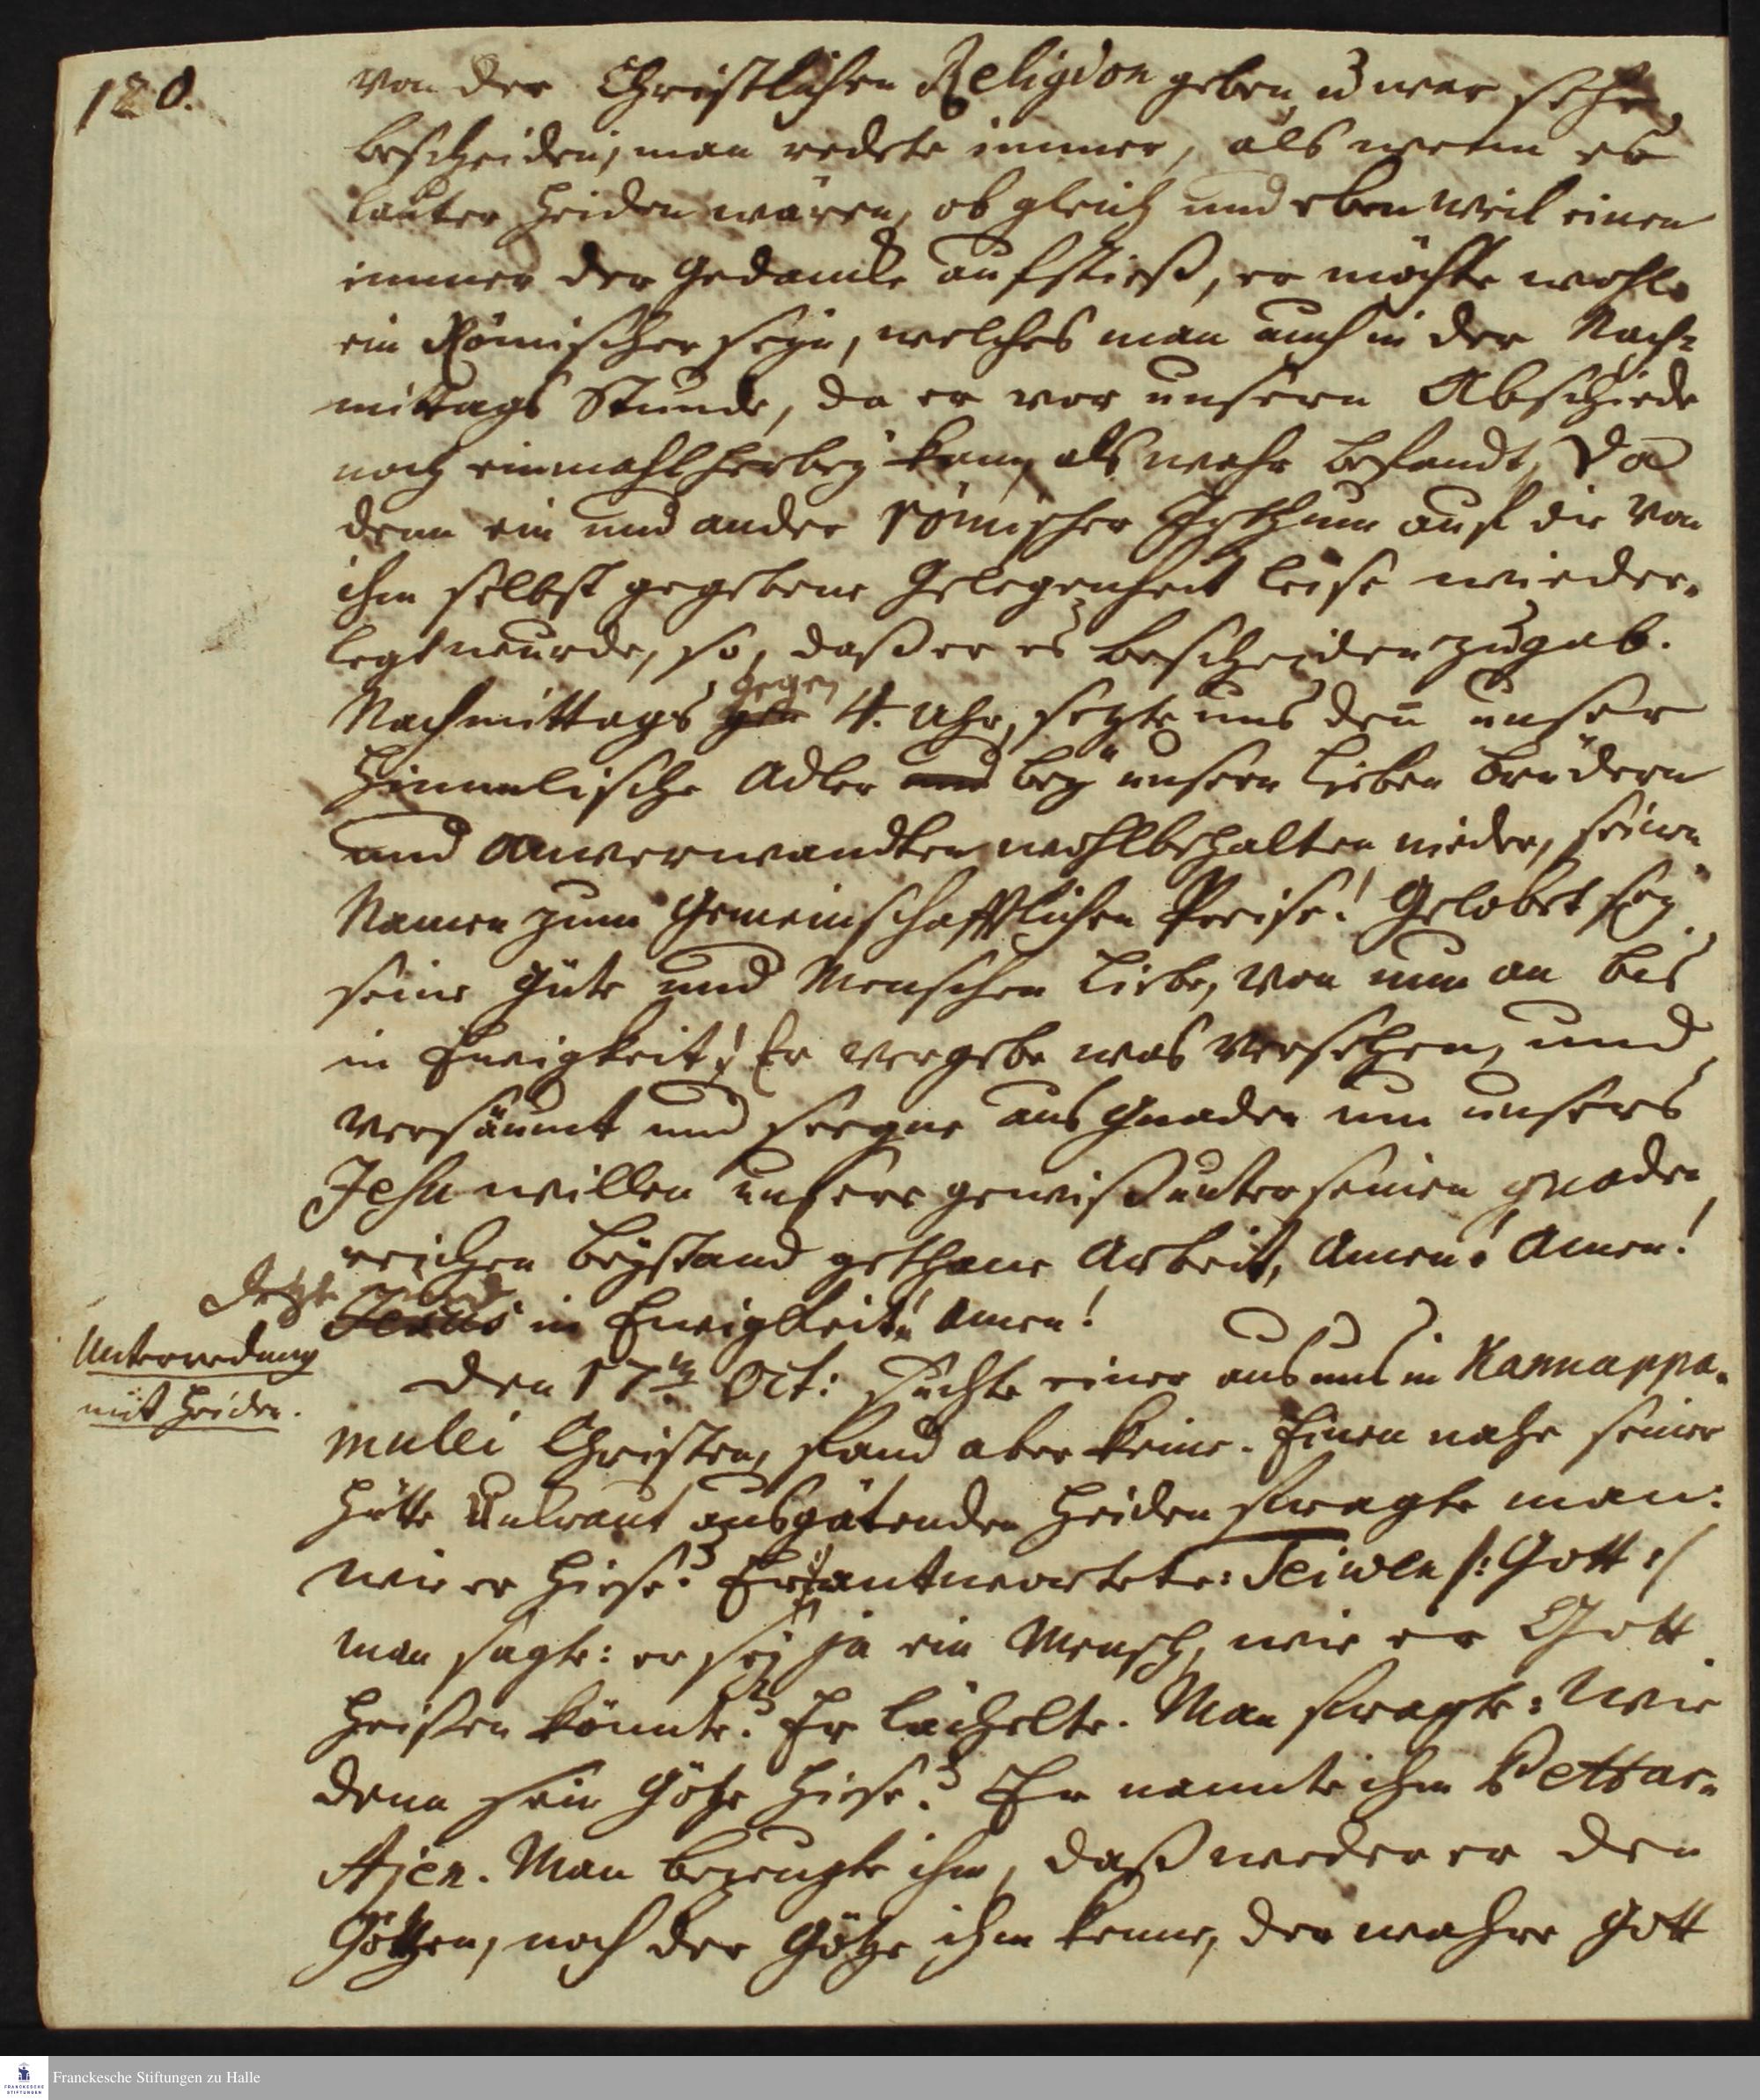 120.
von der Christlichen Religion geben, u. war sehr
bescheiden; man redete immer, als wenn es
lauter Heiden wären, ob gleich und eben weil einen
immer der Gedancke aufstieß, er möchte wohl
ein Römischer seyn, welches man auch in der Nach-
mittags Stunde, da er vor unsern Abschiede
noch einmahl herbey kam, als wahr befandt, da
denn ein und ander römischer Irrthum auf die von
ihm selbst gegebene Gelegenheit leise wieder-
legt wurde, so, daß er es bescheiden zugab.
Nachmittags gegen 4. Uhr, sezte uns den unser
Himmlische Adler bey unsern lieben Brüdern
und Anverwandten wohlbehalten nieder, seinen
Namen zum Gemeinschafftlichen Preise! Gelobet sey
seine Güte und Menschen Liebe, von nun an bis
in Ewigkeit! Er vergebe was versehen, und
versäumt und seegne aus Gnaden um unsers
Jesu willen unsere gewiß unter seinen gnaden
reichen Beystand gethane Arbeit, Amen! Amen!
Jetzt und in Ewigkeit! Amen!
Unterredung
mit Heiden.
Den 17n Oct: suchte einer aus uns in Kannappa-
mulei Christen, fand aber keine. Einen nahe seiner
Hütte Unkraut ausgätenden Heiden fragte man:
wie er hiese? Er antwortete: Teiwen /: Gott :/
man sagte: er sey ja ein Mensch, wie er Gott
heißen könnte? Er lächelte. Man fragte: Wie
denn sein Götze hiese? Er nannte ihm Pettar-
Ajen. Man bezeugte ihm, daß weder er den
Götzen, noch der Götze ihm kenne, der wahre Gott
Franckesche Stiftungen zu Halle